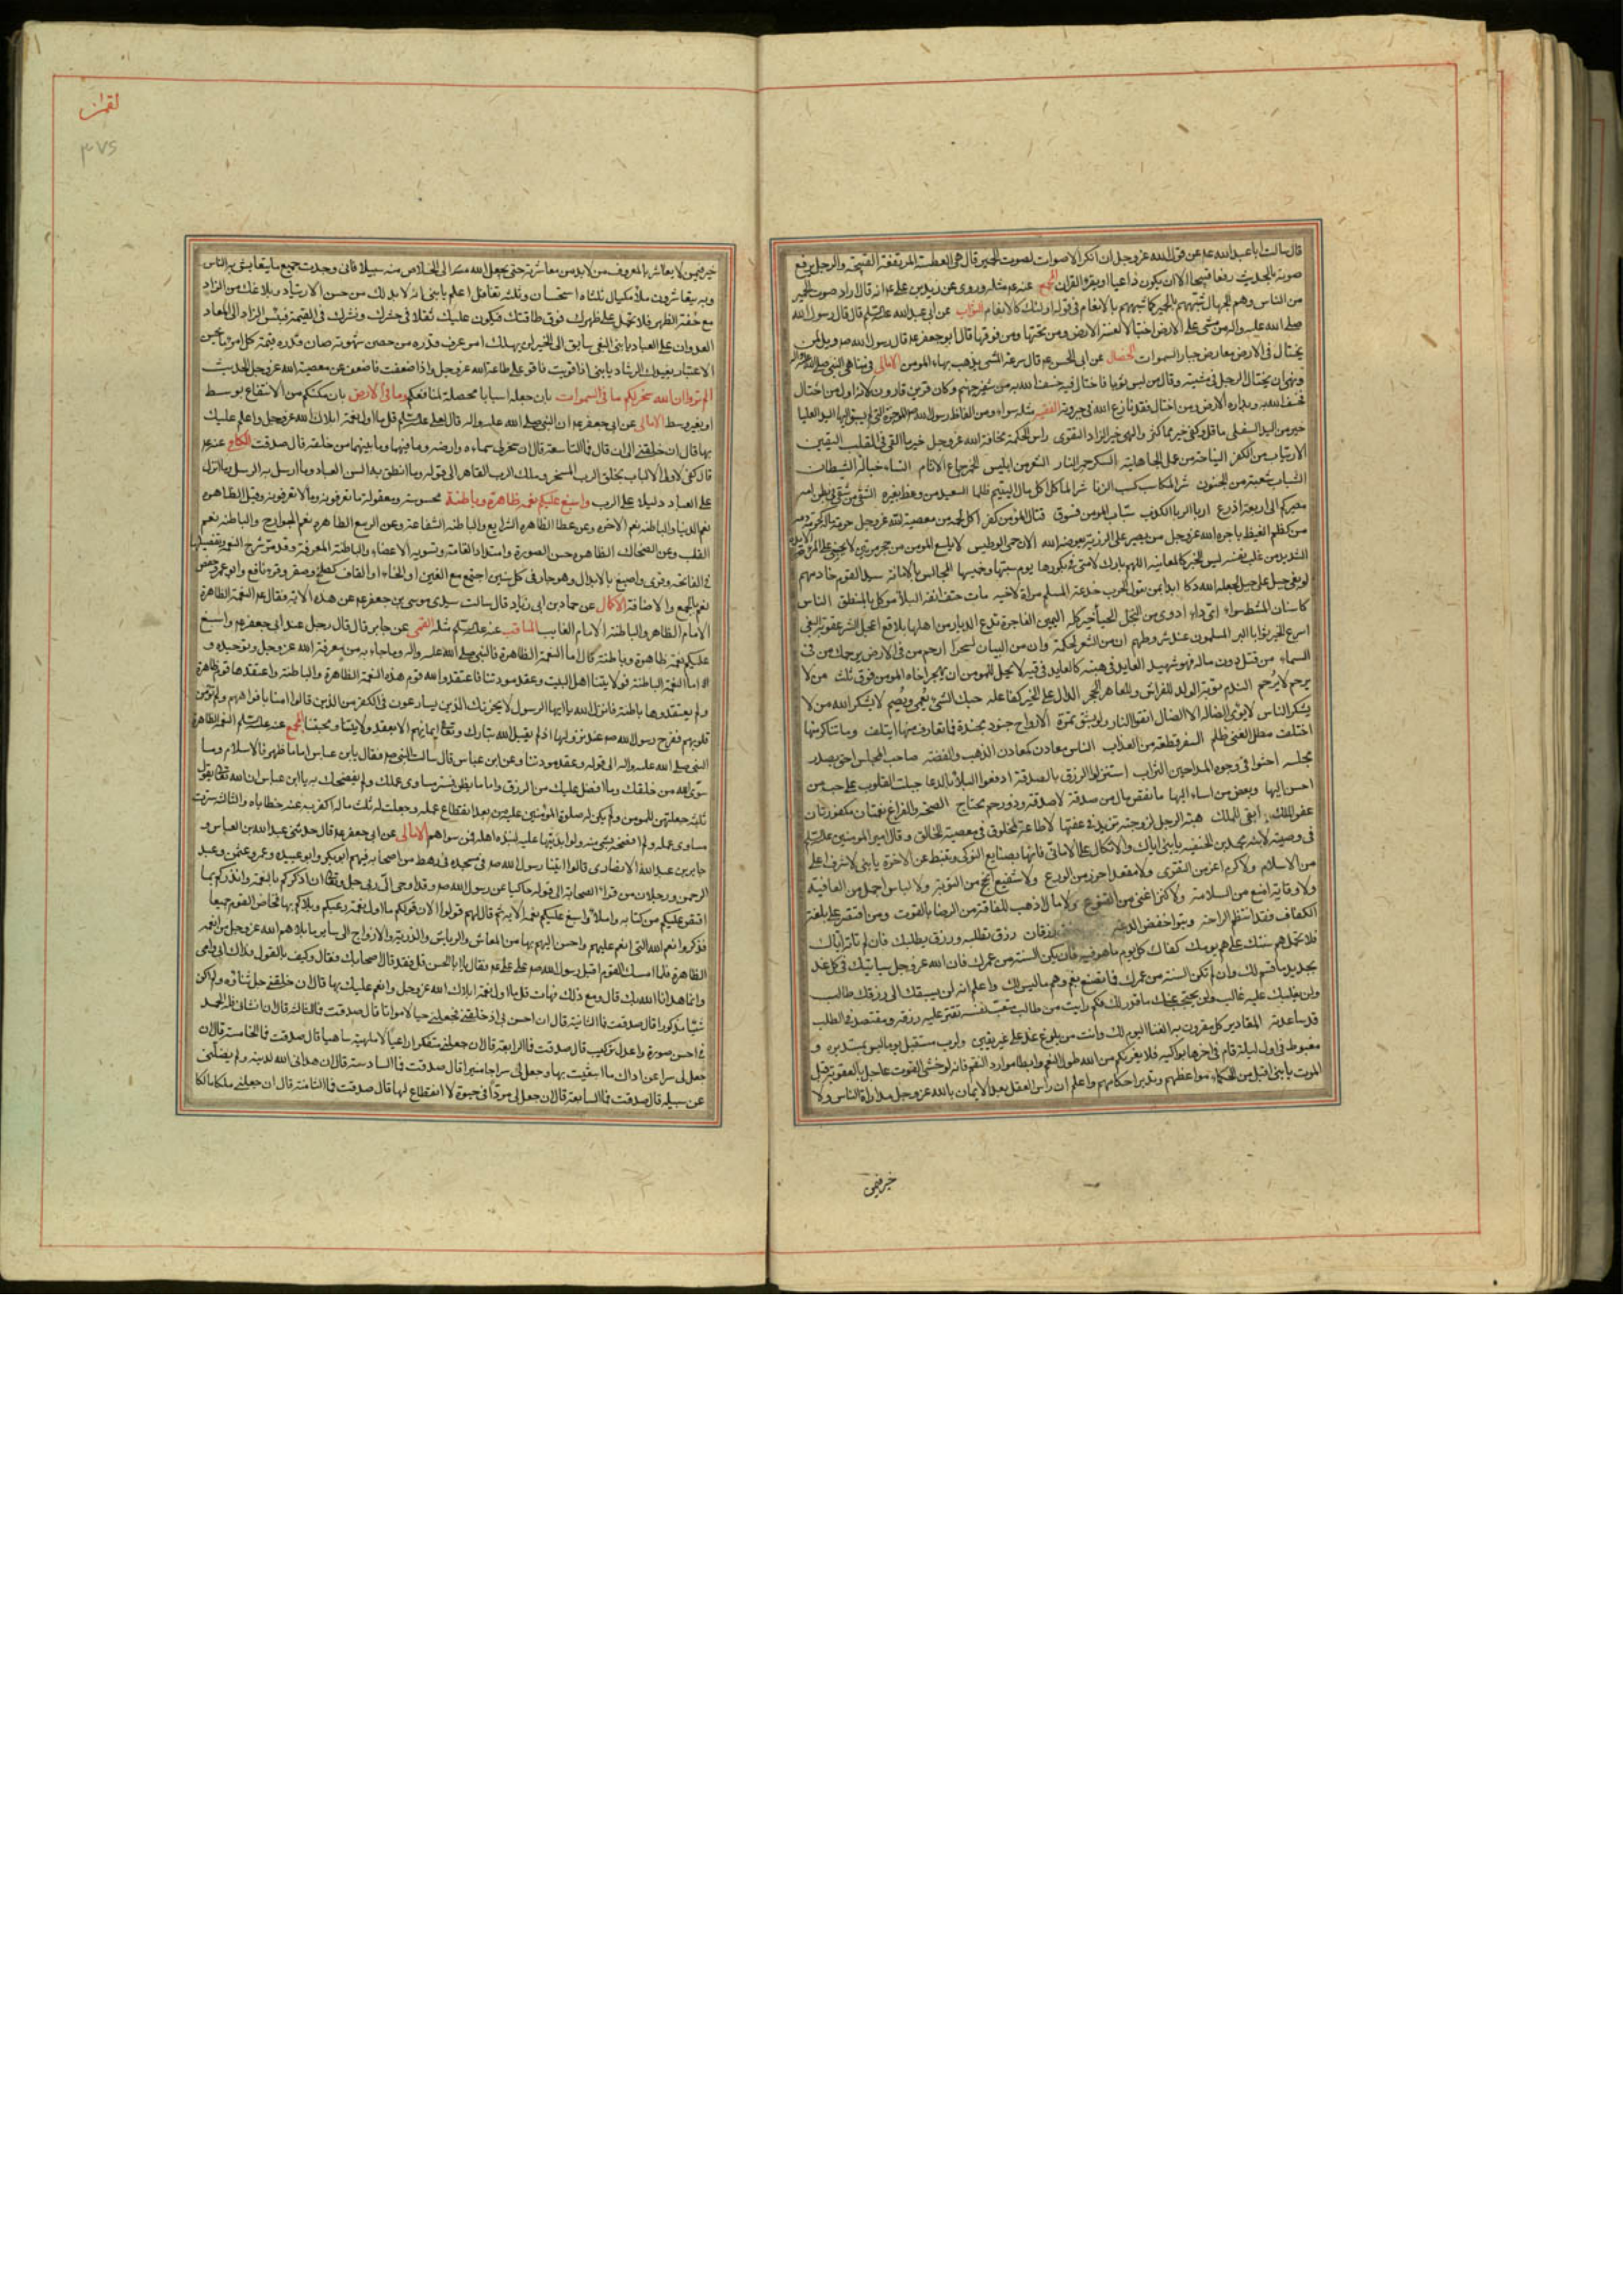 قال سالت ابا عبدالله ع عن قول الله عزوجل ان انكر الاصوات لصوت الحمير قال هي العطسة المرتفعة القبيحة والرجل يرفع
صوته بالحديث رفعا قبيحا الا ان يكون داعيا او يقرء القران المجمع عنه ع مثله وروى عن زيد بن علي ع انه قال اراد صوت الحمير
من الناس وهم الجهال شبههم بالحمير كما شبههم بالانعام في قوله اولئك كالانعام الثواب عن ابي عبدالله عليه السلم قال قال رسول الله
صلى الله عليه واله من مشى على الارض اختيالا لعنته الارض ومن تحتها ومن فوقها قال ابو جعفر ع قال رسول الله ص ويل لمن
يختال في الارض معارض جبار السموات الخصال عن ابي الحسن ع قال سرعة المشي يذهب ببهاء المومن الامالي في مناهي النبي صلى الله عليه واله
ونهى ان يختال الرجل في مشيته وقال من لبس ثوبا فاختال فيه خسف الله به من شفير جهنم وكان قرين قارون لانه اول من اختال
فخسف الله به وبداره الارض ومن اختال فقد نازع الله في جبروته الفقيه مثله سواء ومن الفاظ رسول الله ص الموجزة التي لم يسبق اليها اليد العليا
خير من اليد السفلى ما قل وكفى خير مما كثر والهى خير الزاد التقوى راس الحكمة مخافة الله عزوجل خير ما القي في القلب اليقين
الارتياب من الكفر النياحة من عمل الجاهلية السكر جمر النار الشعر من ابليس الخمر جماع الاثام النساء حبالة الشيطان
الشباب شعبة من الجنون شر المكاسب كسب الربا شر الماكل اكل مال اليتيم ظلما السعيد من وعظ بغيره الشقي من شقي في بطن امه
مصيركم الى اربعة اذرع اربى الربا الكذب سباب المومن فسوق قتال المؤمن كفر اكل لحمه من معصية الله عزوجل حرمة ماله كحرمة دمه
من كظم الغيظ ياجره الله عزوجل من يصبر على الرزية يعوضه الله الان حمى الوطيس لا يلسع المومن من جحر مرتين لا يجني على المرء الا يده
الشديد من غلب نفسه ليس الخبر كالمعاينة اللهم بارك لامتي في بكورها يوم سبتها وخميسها المجالس بالامانة سيد القوم خادمهم
لو بغى جبل على جبل لجعله الله دكا ابدا بمن تعول الحرب خدعة المسلم مراة لاخيه مات حتف انفه البلاء موكل بالمنطق الناس
كاسنان المشط سواء اي داء ادوى من البخل الحياء خير كله اليمين الفاجرة تدع الديار من اهلها بلاقع اعجل الشر عقوبة البغي
اسرع الخير ثوابا البر المسلمون عند شروطهم ان من الشعر لحكمة وان من البيان لسحرا ارحم من في الارض يرحمك من في
السماء من قتل دون ماله فهو شهيد العايد في هبته كالعايد في قيئه لا يحل للمومن ان يهجر اخاه المومن فوق ثلث من لا
يرحم لا يرحم الندم توبة الولد للفراش وللعاهر الحجر الدال على الخير كفاعله حبك الشئ يعمي ويصم لا يشكر الله من لا
يشكر الناس لا يؤوى الضالة الا الضال اتقوا النار ولو بشق تمرة الارواح جنود مجندة فما تعارف منها ايتلف وما تناكر منها
اختلف مطل الغني ظلم السفر قطعة من العذاب الناس معادن كمعادن الذهب والفضة صاحب المجلس احق بصدر
مجلسه احثوا في وجوه المداحين التراب استنزلوا الرزق بالصدقة ادفعوا البلاء بالدعا جبلت القلوب على حب من
احسن اليها وبغض من اساء اليها ما نقص مال من صدقة لا صدقة وذو رحم محتاج الصحة والفراغ نعمتان مكفورتان
عفو الملك ابقى للملك هبة الرجل لزوجته تزيد في عفتها لا طاعة لمخلوق في معصية الخالق وقال امير المومنين عليه السلم
في وصيته لابنه محمد بن الحنفية يا بني اياك والاتكال على الاماني فانها بضايع النوكى وتثبط عن الاخرة يا بني لا شرف اعلى
من الاسلام ولا كرم اعز من التقوى ولا معقل احرز من الورع ولا شفيع انجح من التوبة ولا لباس اجمل من العافية
ولا وقاية امنع من السلامة ولا كنز اغنى من القنوع ولا مال اذهب للفاقة من الرضا بالقوت ومن اقتصر على بلغة
الكفاف فقد انتظم الراحة وتبوا خفض الدعة رزقان رزق تطلبه ورزق يطلبك فان لم تاته اتاك
فلا تحمل هم سنتك على هم يومك كفاك كل يوم ما هو فيه فان تكن السنة من عمرك فان الله عزوجل سياتيك في كل غد
بجديد ما قسم لك وان لم تكن السنة من عمرك فما تصنع بغم وهم ما ليس لك واعلم انه لن يسبقك الى رزقك طالب
ولن يغلبك عليه غالب ولن يحتجب عنك ما قدر لك فكم رايت من طالب متعب نفسه مقتر عليه رزقه ومقتصد في الطلب
قد ساعدته المقادير كل مقرون به الفنا اليوم لك وانت من بلوغ غد على غير يقين ولرب مستقبل يوما ليس بمستدبره و
مغبوط في اول ليلة قام في اخرها بواكيه فلا يغرنكم من الله طول النعم وابطا موارد النقم فانه لو خشي الفوت عاجل بالعقوبة قبل
الموت يا بني اقبل من الحكماء مواعظهم وتدبر احكامهم واعلم ان راس العقل بعد الايمان بالله عزوجل مداراة الناس ولا
خير فيمن
لقمان
٣٧٥
خير فيمن لا يعاشر بالمعروف من لا بد من معاشرته حتى يجعل الله منه الى الخلاص منه سبيلا فاني وجدت جميع ما يتعايش به الناس
وبه يتعاشرون ملاء مكيال ثلثاه استحسان وثلثه تغافل اعلم يا بني انه لا بد لك من حسن الارتياد وبلاغك من الزاد
مع خفة الظهر فلا تحمل على ظهرك فوق طاقتك فيكون عليك ثقلا في حشرك ونشرك في القيمة فبئس الزاد الى المعاد
العدوان على العباد يا بني البغي سابق الى الحين لن يهلك امرء عرف قدره من حصن شهوته صان قدره قيمة كل امرء ما يحسن
الاعتبار يفيدك الرشاد يا بني اذا قويت فاقو على طاعة الله عزوجل واذا ضعفت فاضعف عن معصية الله عزوجل الحديث
الم تروا ان الله سخر لكم ما في السموات بان جعله اسبابا محصلة لمنافعكم وما في الارض بان مكنكم من الانتفاع بوسط
او بغير وسط الامالي عن ابي جعفر ع ان النبي صلى الله عليه واله قال لعلي عليه السلم قل ما اول نعمة ابلاك الله عزوجل وانعم عليك
بها قال ان خلقني الى ان قال فما التاسعة قال ان سخر لي سماءه وارضه وما فيهما وما بينهما من خلقه قال صدقت الكافي عنه ع
قال كفى لاولي الالباب بخلق الرب المسخر وملك الرب القاهر الى قوله وما انطق به السن العباد وما ارسل به الرسل وما انزل
على العباد دليلا على الرب واسبغ عليكم نعمه ظاهرة وباطنة محسوسة ومعقولة ما تعرفونه وما لا تعرفونه وقيل الظاهرة
نعم الدنيا والباطنة نعم الاخرة وعن عطا الظاهرة الشرايع والباطنة الشفاعة وعن الربيع الظاهرة نعم الجوارح والباطنة نعم
القلب وعن الضحاك الظاهرة حسن الصورة وامتداد القامة وتسوية الاعضاء والباطنة المعرفة وقد مر شرح النعم وتفصيلها
في الفاتحة وقرئ واصبغ بالابدال وهو جار في كل سين اجتمع مع الغين او الخاء او القاف كصلخ وصقر وقرء نافع وابو عمرو وحفص
نعمه بالجمع والاضافة الاكمال عن حماد بن ابي زياد قال سالت سيدي موسى بن جعفر ع عن هذه الاية فقال ع النعمة الظاهرة
الامام الظاهر والباطنة الامام الغايب المناقب عنه عليه السلم مثله القمي عن جابر قال قال رجل عند ابي جعفر ع واسبغ
عليكم نعمه ظاهرة وباطنة قال اما النعمة الظاهرة فالنبي صلى الله عليه واله وما جاء به من معرفة الله عزوجل وتوحيده و
اما النعمة الباطنة فولايتنا اهل البيت وعقد مودتنا فاعتقد والله قوم هذه النعمة الظاهرة والباطنة واعتقدها قوم ظاهرة
ولم يعتقدوها باطنة فانزل الله يا ايها الرسول لا يحزنك الذين يسارعون في الكفر من الذين قالوا امنا بافواههم ولم تؤمن
قلوبهم ففرح رسول الله ص عند نزولها اذ لم يقبل الله تبارك وتعالى ايمانهم الا بعقد ولايتنا ومحبتنا المجمع عنه عليه السلم النعمة الظاهرة
النبي صلى الله عليه واله الى قوله وعقد مودتنا وعن ابن عباس قال سالت النبي ص فقال يا بن عباس اما ما ظهر فالاسلام وما
سوى الله من خلقك وما افضل عليك من الرزق واما ما بطن فستر مساوي عملك ولم يفضحك به يا ابن عباس ان الله تعالى يقول
ثلثة جعلتهن للمومن ولم يكن له صلوة المؤمنين عليه من بعد انقطاع عمله وجعلت له ثلث ماله اكفر به عنه خطاياه والثالث سترت
مساوي عمله ولم افضحه بشئ منه ولو ابديتها عليه لنبذه اهله فمن سواهم الامالي عن ابي جعفر ع قال حدثني عبدالله بن العباس و
جابر بن عبدالله الانصاري قالوا اتينا رسول الله ص في مسجده في رهط من اصحابه فيهم ابو بكر وابو عبيدة وعمر وعثمن وعبد
الرحمن ورجلان من قراء الصحابة الى قوله حاكيا عن رسول الله ص وقد اوحى الي ربي جل وتعالى ان اذكركم بالنعمة وانذركم بما
اقتص عليكم من كتابه واملا واسبغ عليكم نعمه الاية ثم قال لهم قولوا الان قولكم ما اول نعمة رغبكم وبلاكم بها فخاض القوم جميعا
فذكروا نعم الله التي انعم عليهم واحسن اليهم بها من المعاش والرياش والذرية والازواج الى ساير ما بلاهم الله عزوجل من انعمه
الظاهرة فلما امسك القوم اقبل رسول الله ص على علي ع فقال يا ابا الحسن قل فقد قال اصحابك فقال وكيف بالقول فداك ابي وامي
وانما هدانا الله بك قال ومع ذلك فهات قل ما اول نعمة ابلاك الله عزوجل وانعم عليك بها قال ان خلقني جل ثناؤه ولم اكن
شيئا مذكورا قال صدقت فما الثانية قال ان احسن بي اذ خلقني فجعلني حيا لا مواتا قال صدقت فما الثالثة قال ان انشاني فله الحمد
في احسن صورة واعدل تركيب قال صدقت فما الرابعة قال ان جعلني متفكرا راعيا لا بلهة ساهيا قال صدقت فما الخامسة قال ان
جعل لي سراعن ادراك ما ابتغيت بها وجعل لي سراجا منيرا قال صدقت فما السادسة قال ان هداني الله لدينه ولم يضلني
عن سبيله قال صدقت فما السابعة قال ان جعل لي مردا في حيوة لا انقطاع لها قال صدقت فما الثامنة قال ان جعلني ملكا مالكا